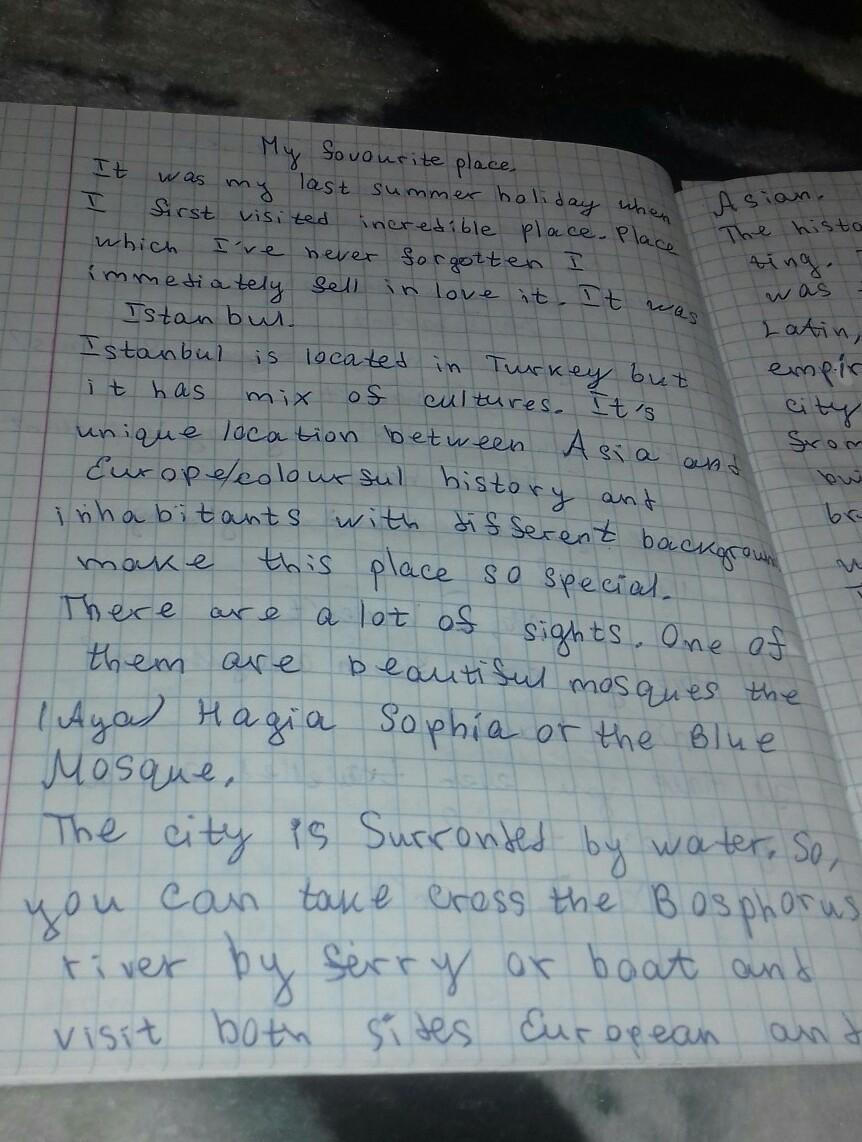 My favourite place.
It was my last summer holiday when
I first visited incredible place. Place
which I've never forgotten I
immediately fell in love it. It was
Istanbul.
Istanbul is located in Turkey but
it has mix of cultures. It's
unique location between Asia and
Europe/colourful history and
inhabitants with different backgroun
make this place so special.
There are a lot of sights. One of
them are beautiful mosques the
(Aya) Hagia Sophia or the Blue
Mosque.
The city is Surronded by water. So,
you can take cross the Bosphorus
river by ferry or boat and
visit both sides European and
Asian.
The histo
ting.
was
Latin,
empir
city
from
bui
br